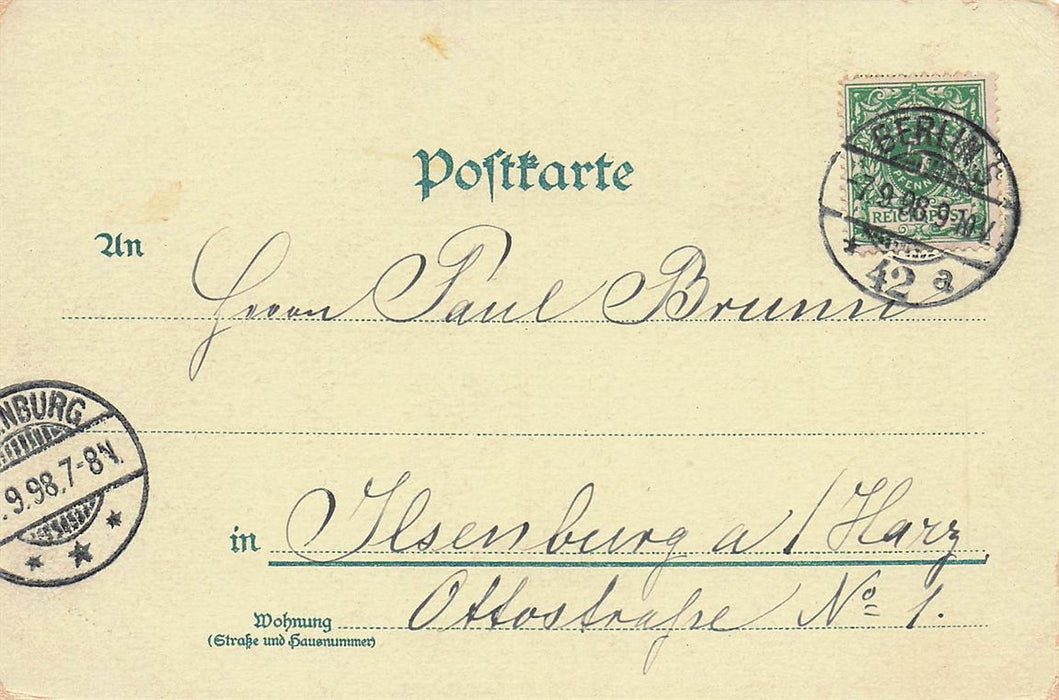 Postkarte
An
Herrn Paul Brunn
in Ilsenburg a/Harz
Ottostraße № 1.
Wohnung
(Straße und Hausnummer)
REICHSPOST
BERLIN S
9.98.9-10V.
* 42 a
NBURG
.9.98.7-8V.